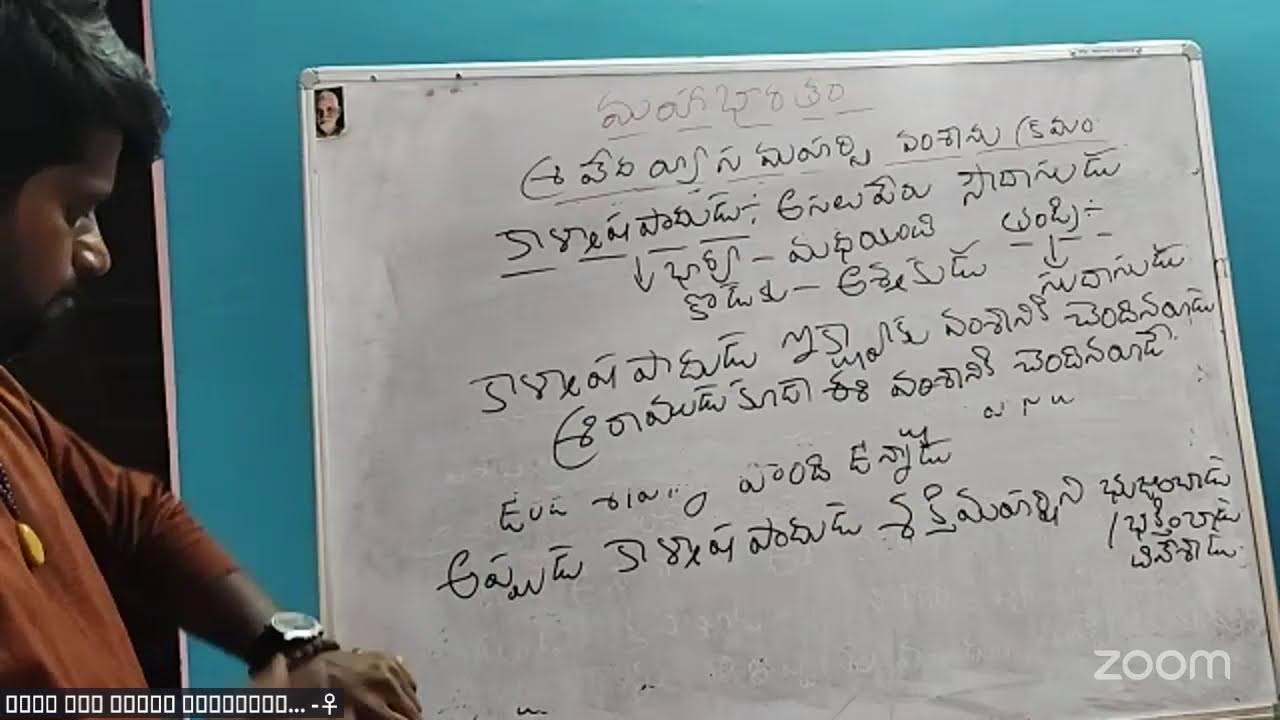 మహాభారతం
శ్రీ వేద వ్యాస మహర్షి వంశాను క్రమం
కాళ్మాషపాదుడు :- అసలు పేరు సౌదాసుడు
భార్య - మదయంతి తండ్రి :-
కొడుకు - అశ్మకుడు సుదాసుడు
కాళ్మాషపాదుడు ఇక్ష్వాకు వంశానికి చెందినవాడు
శ్రీరాముడు కూడా ఈ వంశానికి చెందినవాడే.
పొంది ఉన్నాడు
అప్పుడు కాళ్మాషపాదుడు శక్తిమహర్షిని భుజించాడు
భక్షించాడు
తినేశాడు
zoom